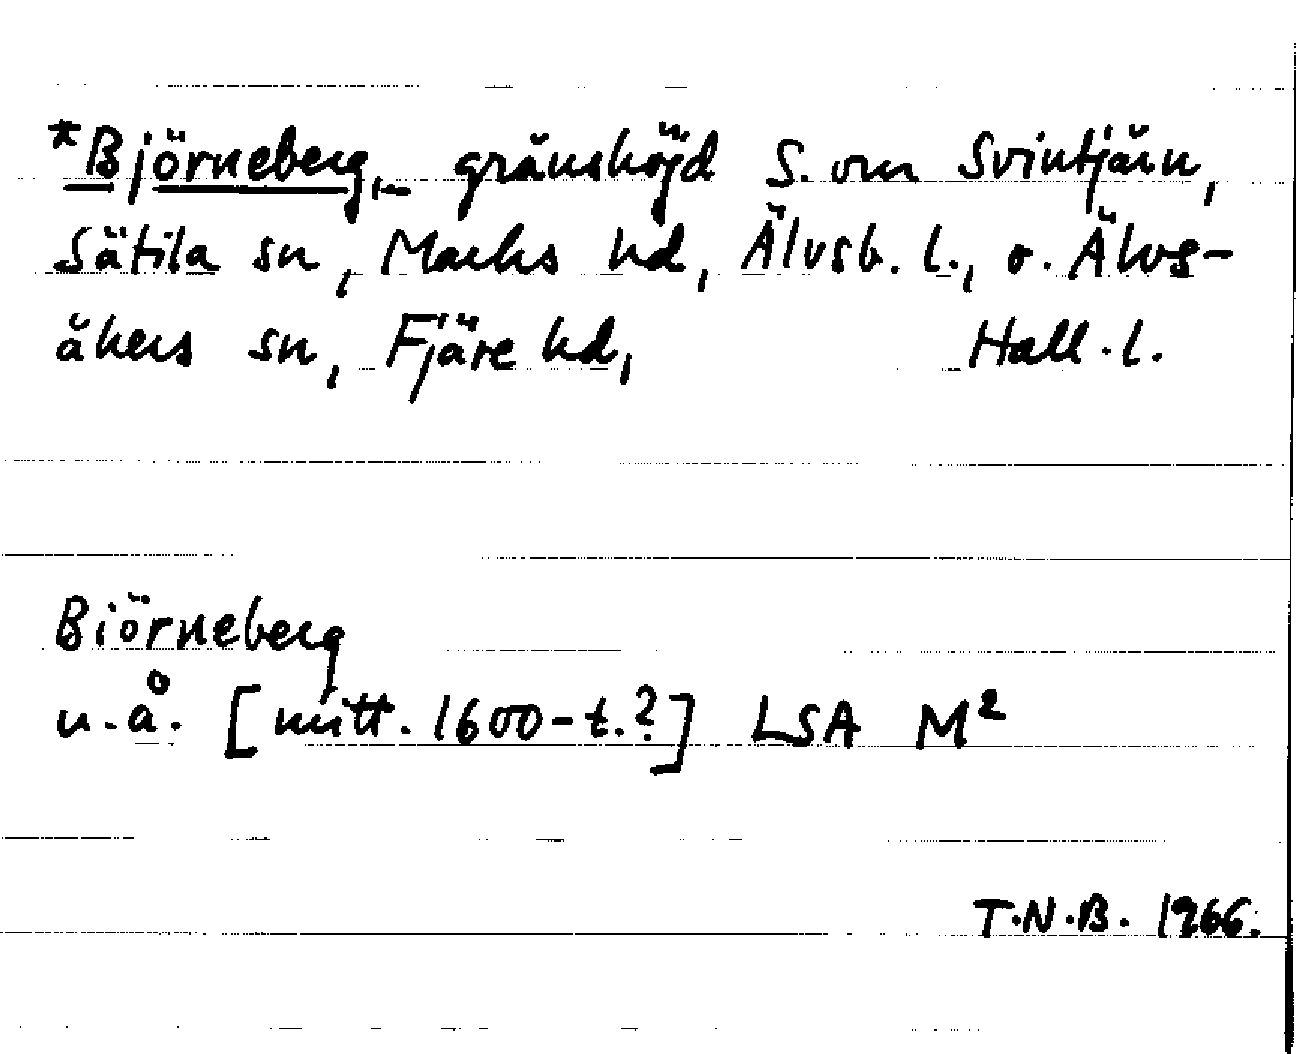 *Björneberg, gränshöjd S. om Svintjärn,
Sätila sn, Marks hd, Älvsb. l., o. Älvs-
åkers sn, Fjäre hd, Hall. l.
Biörneberg
u.å. [mitt. 1600-t.?] LSA M²
T.N.B. 1966.